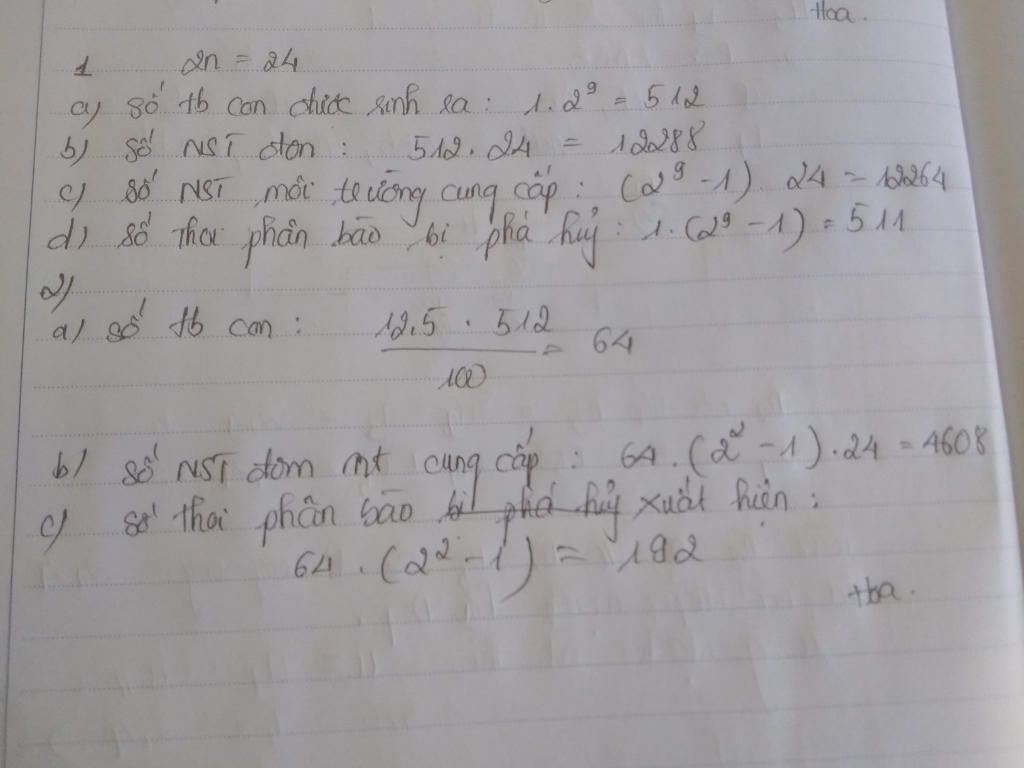 Hoa.
1 2n = 24
a) số tb con được sinh ra : 1.2⁹ = 512
b) số NST đơn : 512 . 24 = 12288
c) số NST môi trường cung cấp : (2⁹ - 1) . 24 = 12264
d) số thoi phân bào bị phá hủy : 1.(2⁹ - 1) = 511
2)
a) số tb con : 12.5 . 512 / 100 = 64
b) số NST đơn mt cung cấp : 64 . (2² - 1) . 24 = 4608
c) số thoi phân bào bị phá hủy xuất hiện :
64 . (2² - 1) = 192